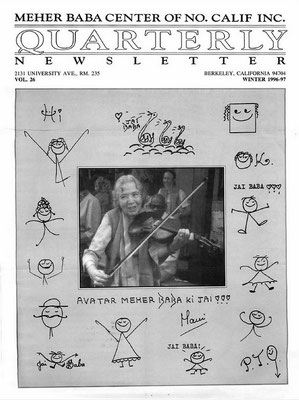 MEHER BABA CENTER OF NO. CALIF INC.
QUARTERLY
NEWSLETTER
2131 UNIVERSITY AVE., RM. 235 BERKELEY, CALIFORNIA 94704
VOL. 26 WINTER 1996-97
Hi
JAI BABA
O.K.
JAI BABA
AVATAR MEHER BABA KI JAI
Mani
JAI BABA!
Jai Baba
P.T.O